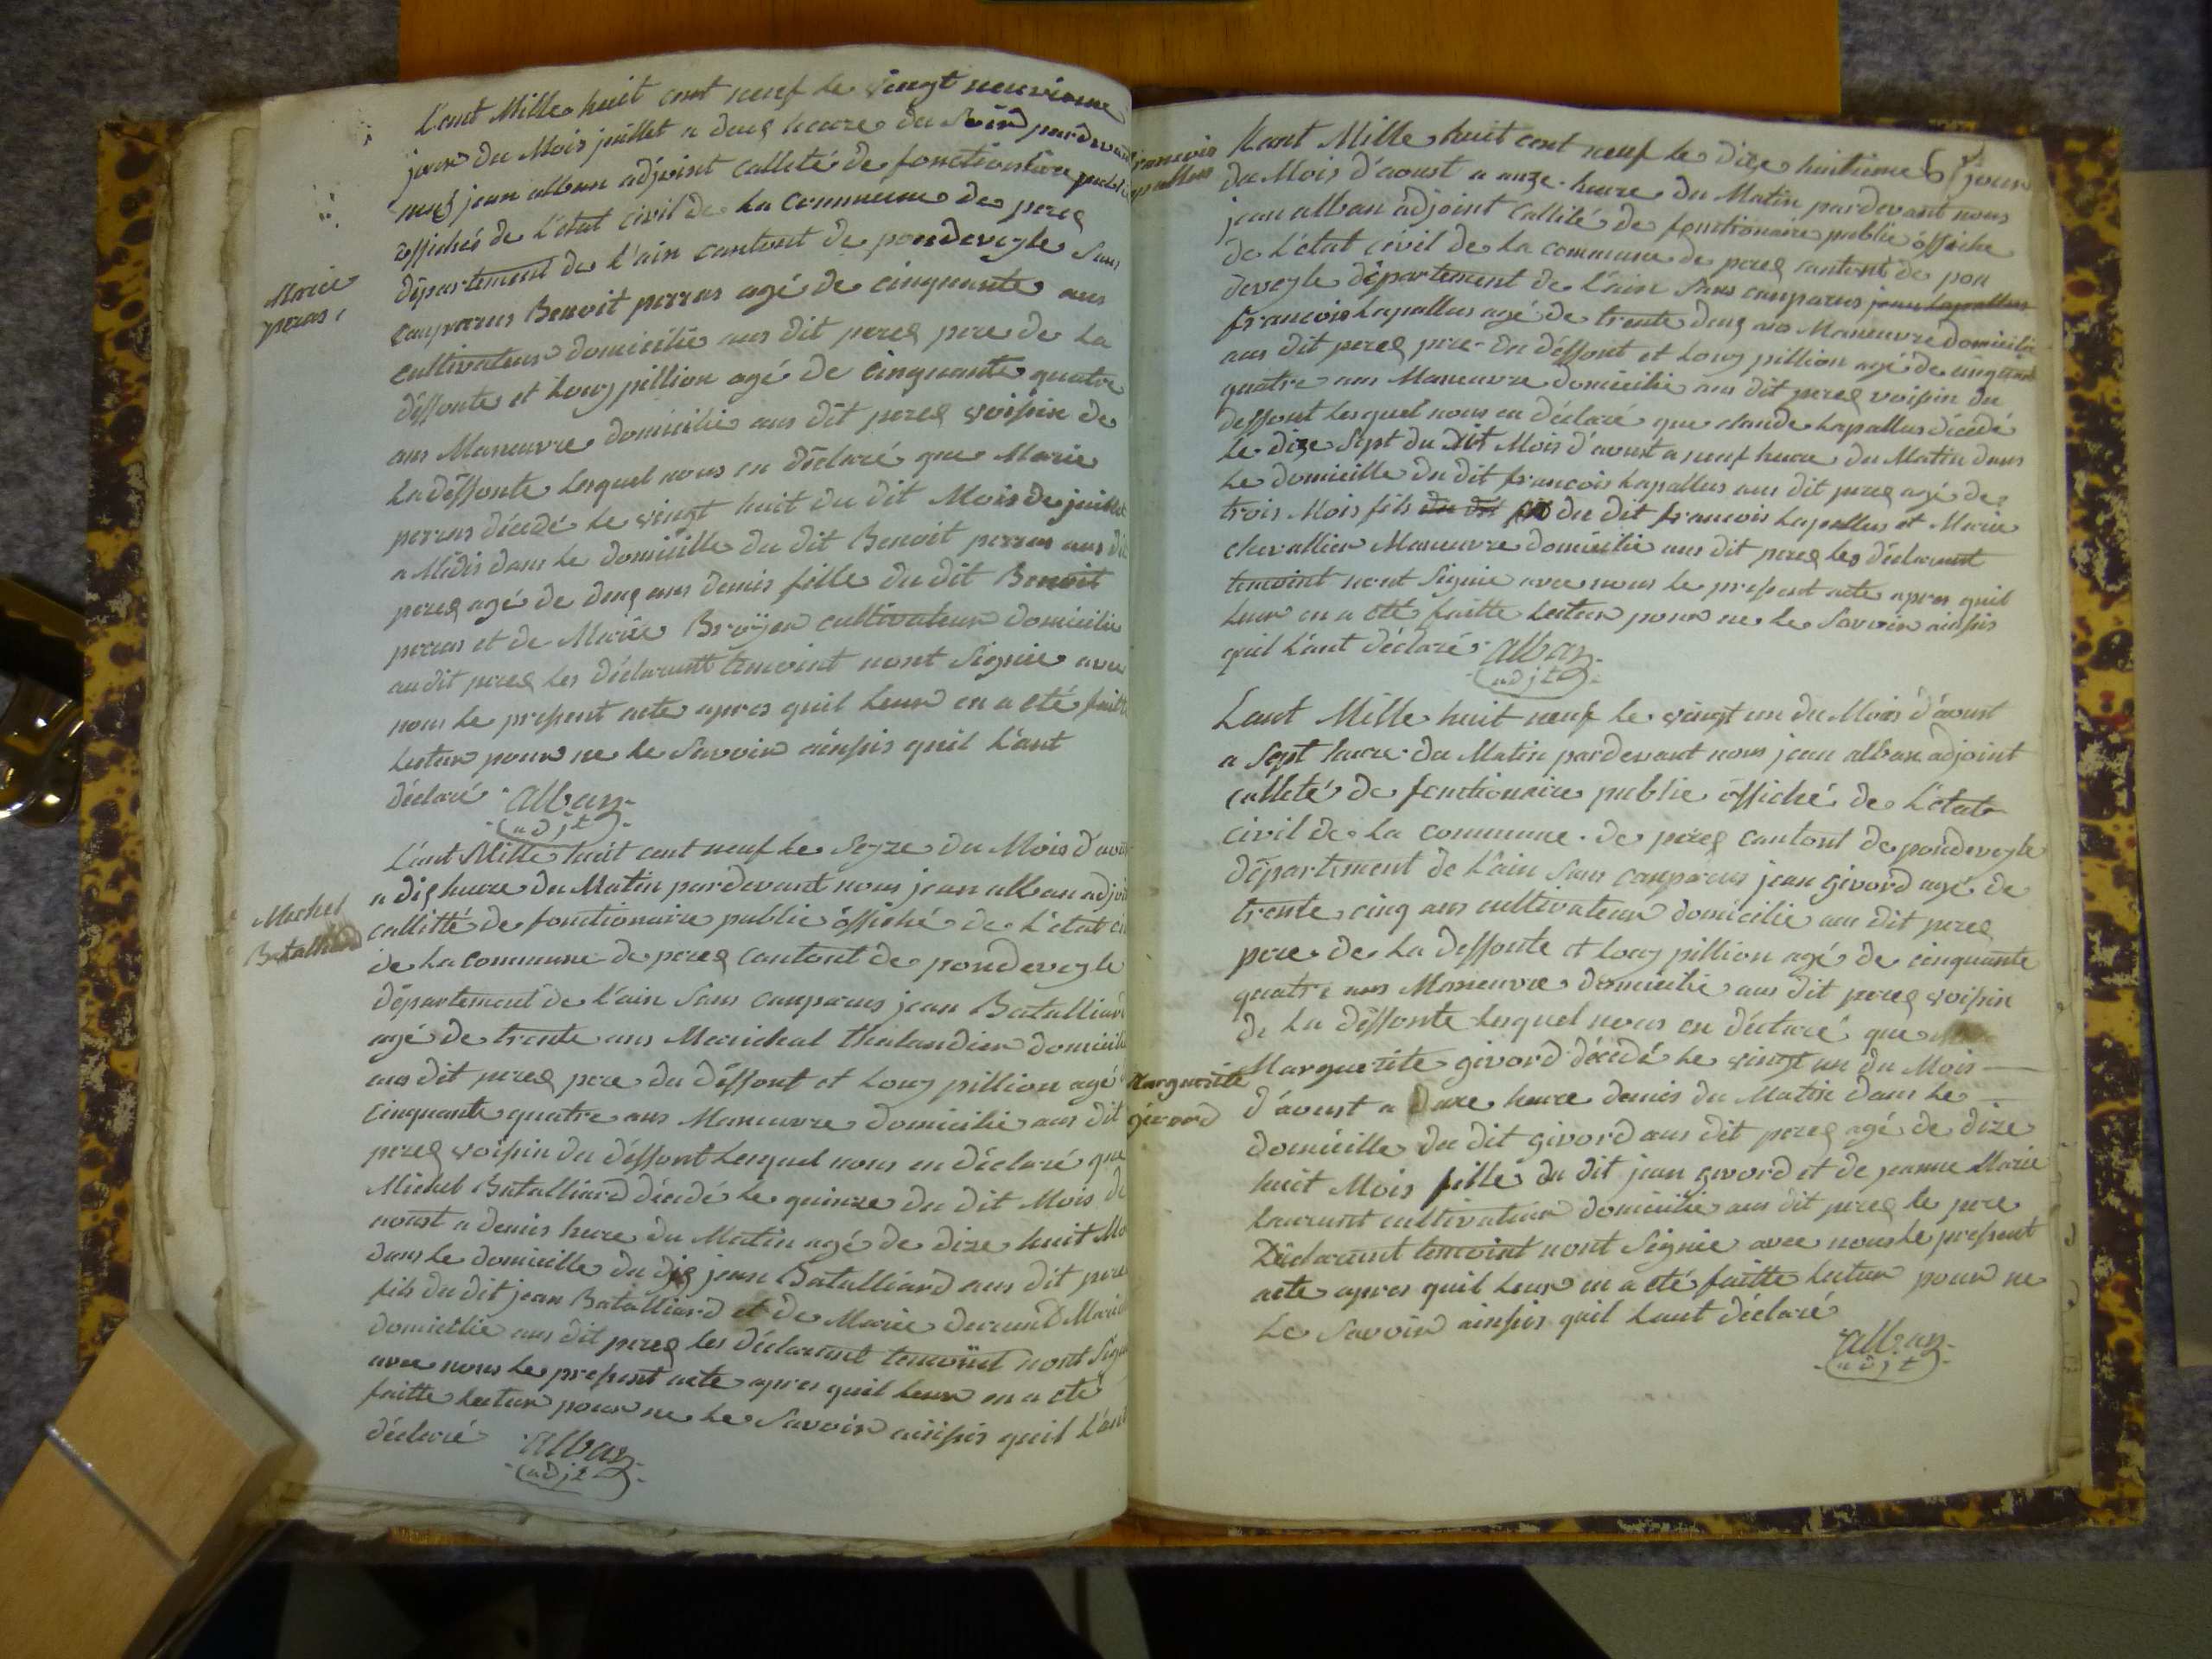 L'ant Mille huit cent neuf le vingt neuvieme
jour du Mois juillet a deuq heure du Soir pardevant
nus jean alban adjoint calleté de fonctionaire public
öffichés de L'état Civil de La Commune de pereq
département de L'ain cantont de pondeveyle Sans
comparus Benoit perras agé de cinquante ans
Marie
peras
cultivateur domicilié aus dit pereq pere de La
déffonte et Louy pillion agé de Cinquante quatre
ans Maneuvre domicilié aus dit pereq voisin de
La déffonte Lesquel nous en déclaré que Marie
perras décédé Le vingt huit du dit Mois de juillet
a Midis dans Le domicille du dit Benoit perras aus dit
pereq agé de deuq ans demis fille du dit Benoit
perras et de Marie Broÿer cultivateur domicilie
au dit pereq Les déclarant temoint nont Signie avec
nous Le present acte apres quil Leur en a eté faitte
Lectur pour ne Le Savoir ainsis quil L'ant
déclaré alban
adjt
L'ant Mille huit cent neuf Le Seyze du Mois d'aoust
a diq heure du Matin pardevant nous jean alban adjoint
Michel
Batalliard
callitté de fonctionaire public öffiché de L'état ci
de La Commune de pereq Cantont de pondeveyle
département de L'ain Sans comparus jean Batalliard
agé de trente ans Marichal thalandier domicilié
aus dit pereq pere du déffont et Louy pillion agé
Cinquante quatre ans Maneuvre domicilie aus dit
pereq voisin du déffont Lesquel nous en déclaré que
Michel Batalliard décédé Le quinze du dit Mois de
aoust a demis heure du Matin agé de dize huit Mo
dans Le domicille du diq jean Batalliard aus dit pere
fils du dit jean Batalliard et de Marie durand Marich
domicilie aus dit pereq les déclarant temoint nont Sign
avec nous Le present acte apres quil Leur en a eté
faitte Lectur pour ne Le Savoir ainsis quil L'ant
déclaré alban
adjt
francois
Lapallus
L'ant Mille huit cent neuf Le dize huitieme jour
du Mois d'aoust a onze heure du Matin pardevant nous
jean alban adjoint Callité de fonctionaire public öffiche
de L'état Civil de La commune de pereq cantont de pon
deveyle département de L'ain Sans comparus jean Lapallus
francois Lapallus agé de trente deuq ans Maneuvre domicilié
aus dit pereq pere du déffont et Louy pillion agé de cinquante
quatre ans Maneuvre domicilie aus dit pereq voisin du
deffont Lesquel nous en déclaré que claude Lapallus décédé
Le dize Sept du dit Mois d'aoust a neuf heure du Matin dans
Le domicille du dit francois Lapallus aus dit pereq agé de
trois Mois fils du dit du dit francois Lapallus et Marie
chevallier Maneuvre domicilié aus dit pereq Les déclarant
temoint nont Signie avec nous Le present acte apres quil
Leur en a eté faitte Lectur pour ne Le Savoir ainsis
quil L'ant déclaré alban
adjt
L'ant Mille huit neuf Le vingt un du Mois d'aoust
a Sept heure du Matin pardevant nous jean alban adjoint
calleté de fonctionaire public öffiché de L'état
Civil de La Commune de pereq Cantont de pondeveyle
département de L'ain Sans comparus jean givord agé de
trente cinq ans cultivateur domicilie aus dit pereq
pere de La deffonte et Louy pillion agé de cinquante
quatre ans Maneuvre domicilie aus dit pereq voisin
de La déffonte Lesquel nous en déclaré que
Marguerite
givord
Marguerite givord décédé Le vingt un du Mois
d'aoust a Duxe heure demis du Matin dans Le
domicille du dit givord aus dit pereq agé de dize
huit Mois fille du dit jean givord et de jeanne Marie
Laurent cultivateur domicilie aus dit pereq le pere
Déclarant temoint nont Signie avec nous Le present
acte apres quil Leur en a eté faitte Lectur pour ne
Le Savoir ainsis quil L'ant déclaré
alban
adjt